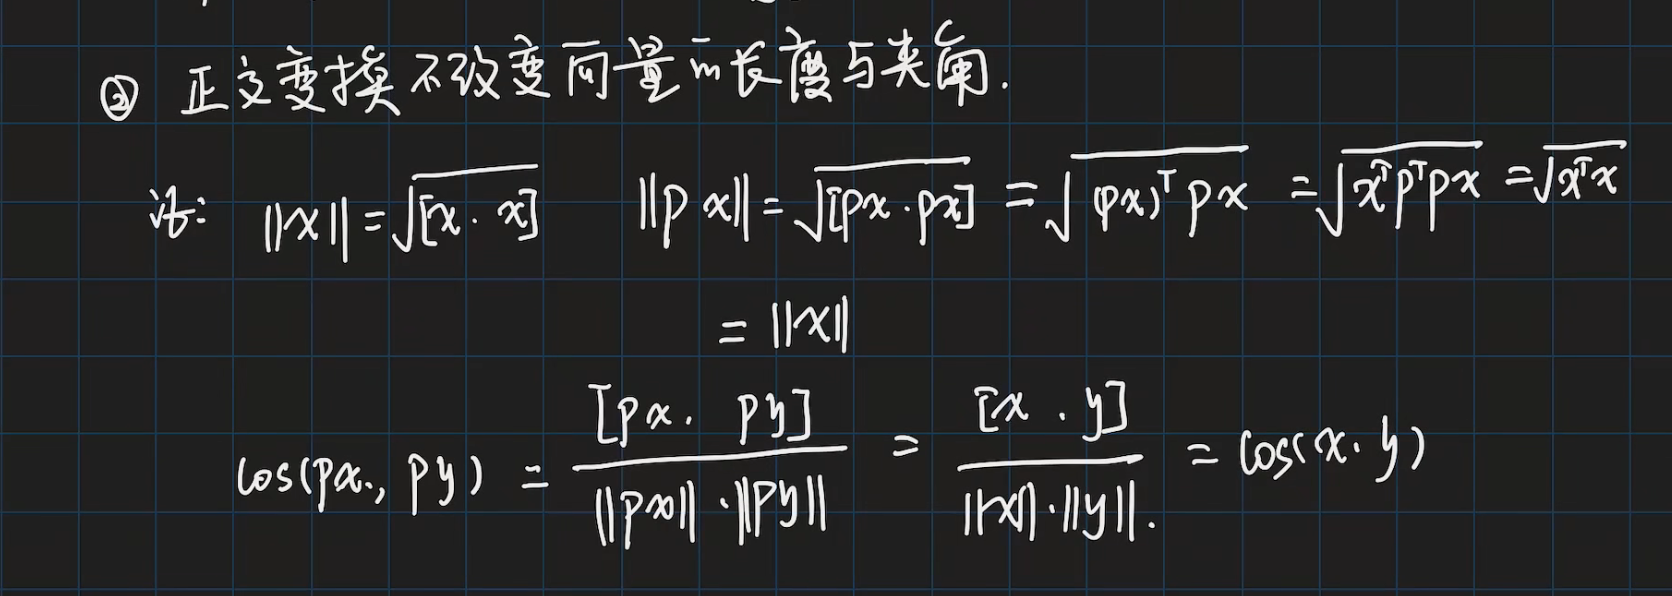 ② 正交变换不改变向量的长度与夹角.
证: ||x|| = √[x. x] ||px|| = √[px.px] = √(px)ᵀpx = √xᵀpᵀpx = √xᵀx
= ||x||
cos(px., py) = [px. py] / ||px||·||py|| = [x . y] / ||x||·||y||. = cos(x. y)